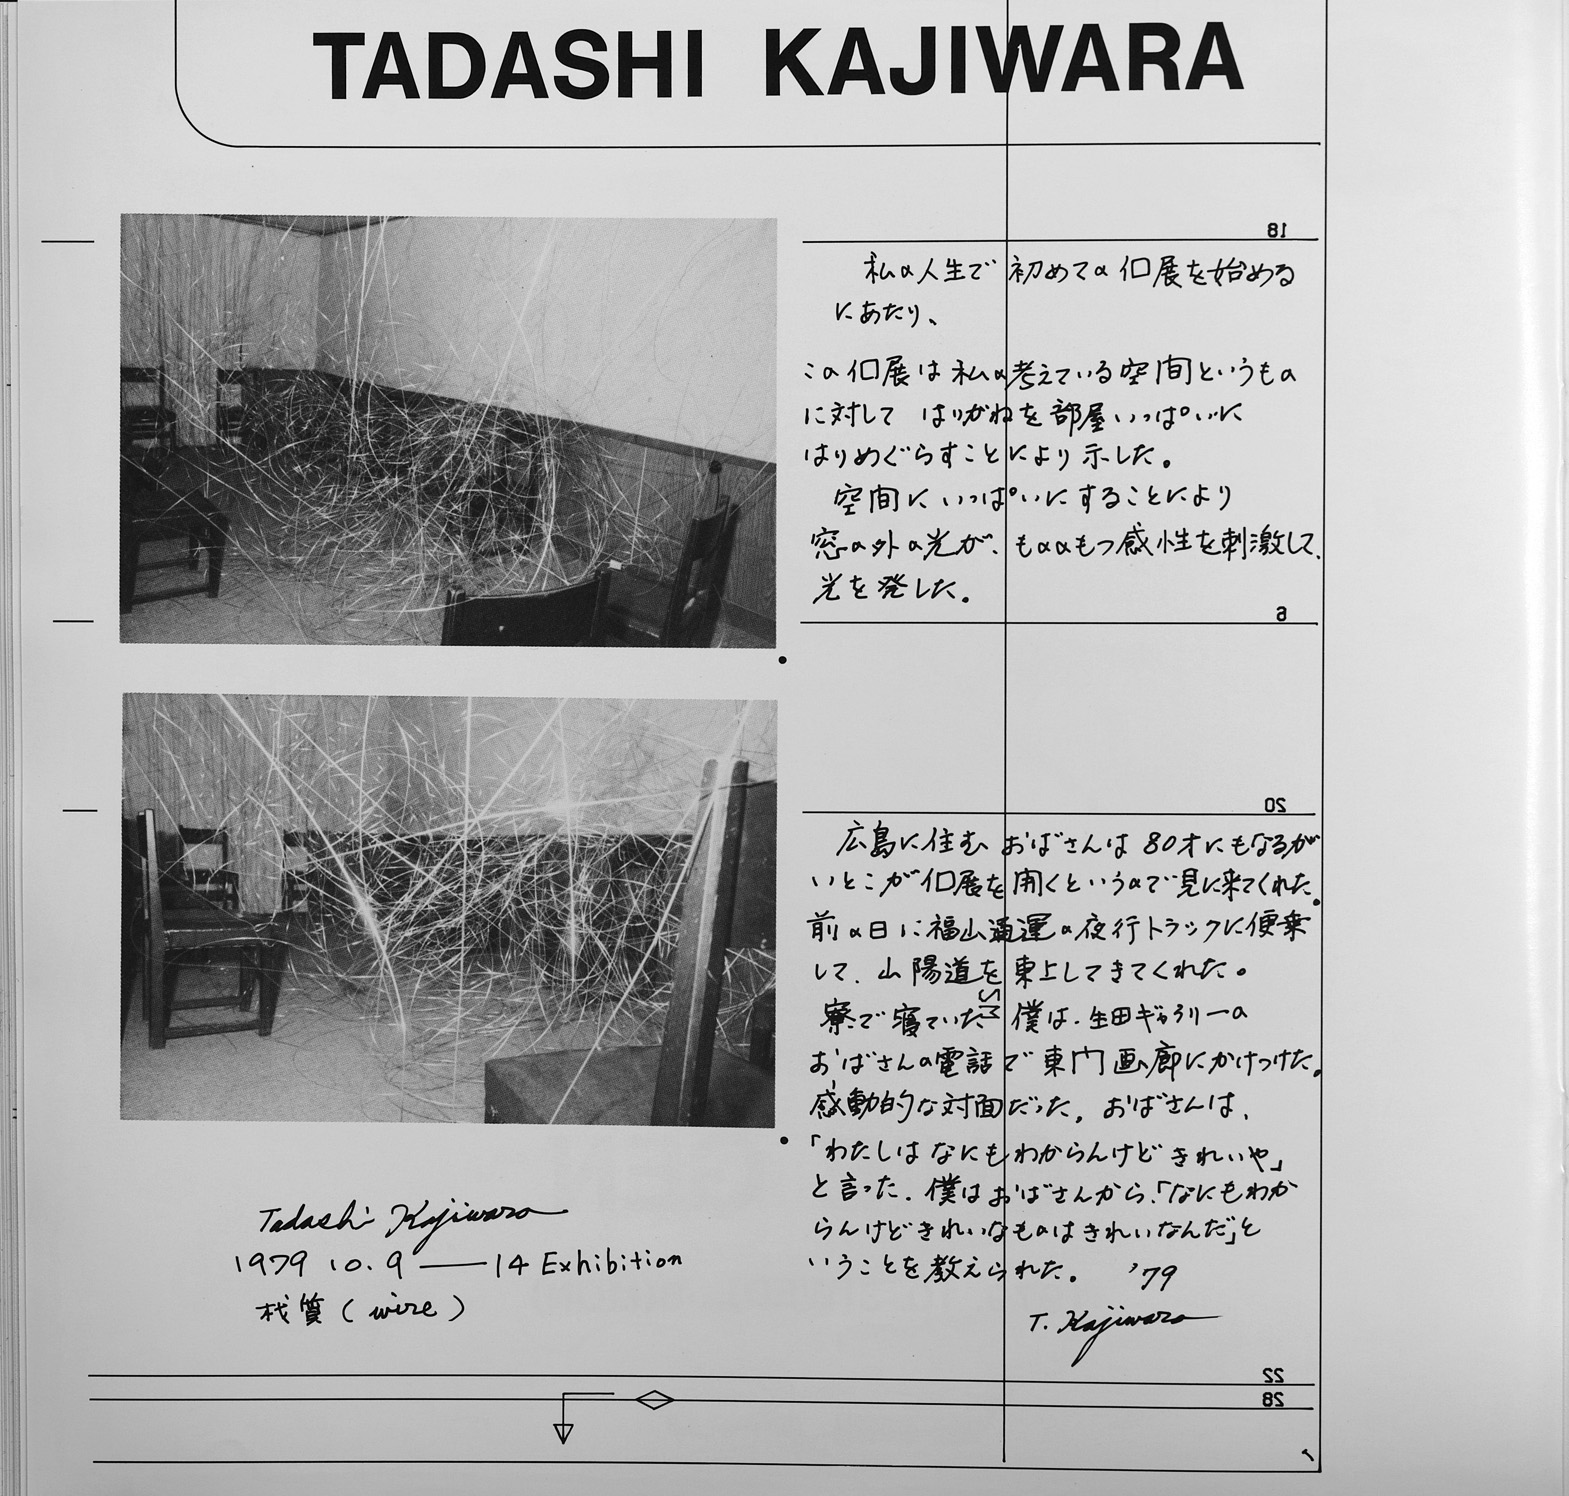 TADASHI KAJIWARA
18
私の人生で初めての個展を始める
にあたり、
この個展は私の考えている空間というもの
に対して はりがねを部屋いっぱいに
はりめぐらすことにより示した。
空間にいっぱいにすることにより
窓の外の光が、もののもつ感性を刺激して、
光を発した。
6
20
広島に住むおばさんは80才にもなるが
いとこが個展を開くというので見に来てくれた。
前の日に福山通運の夜行トラックに便乗
して、山陽道を東上してきてくれた。
寮で寝ていた 僕は、生田ギャラリーの
おばさんの電話で東門画廊にかけつけた。
感動的な対面だった。おばさんは、
「わたしはなにもわからんけどきれいや」
と言った。僕はおばさんから、「なにもわか
らんけどきれいなものはきれいなんだ」と
いうことを教えられた。 '79
T. Kajiwara
Tadashi Kajiwara
1979 10.9—14 Exhibition
材質(wire)
22
28